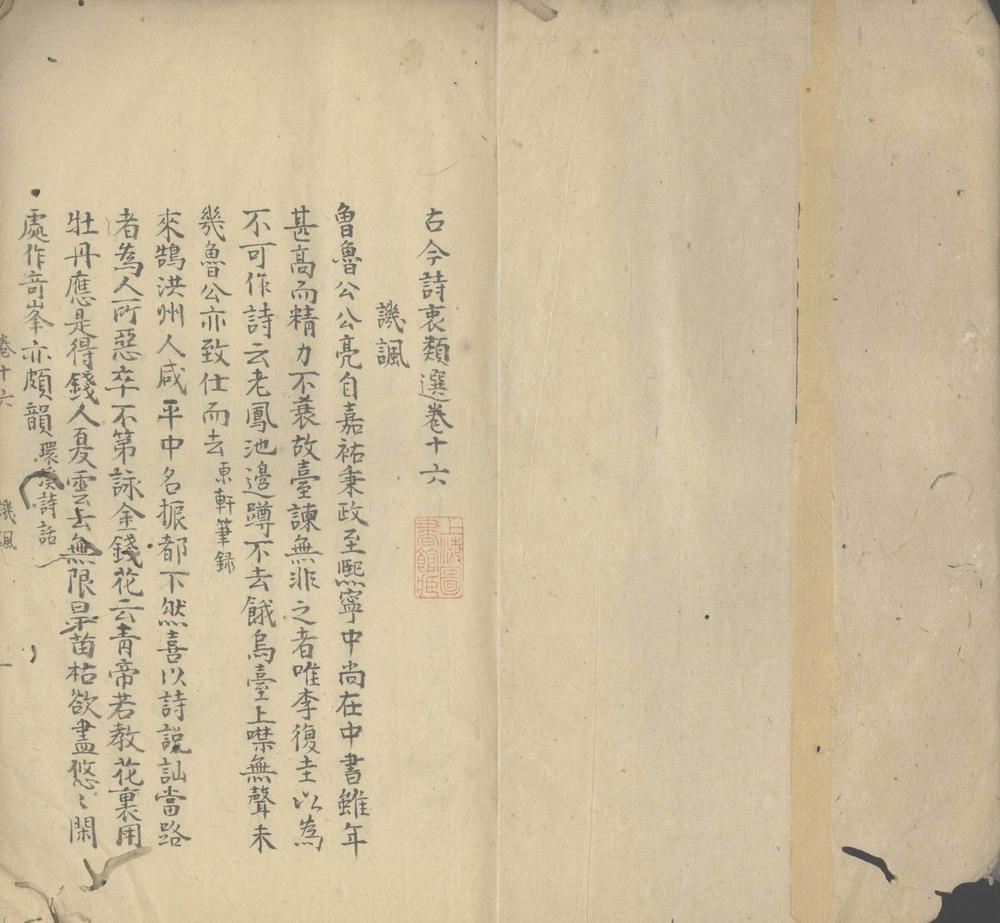 古今詩衷類選卷十六
譏諷
魯魯公公亮自嘉祐秉政至熙寧中尚在中書雖年
甚高而精力不衰故臺諫無非之者唯李復圭以為
不可作詩云老鳳池邊蹲不去餓烏臺上噤無聲未
幾魯公亦致仕而去 東軒筆録
來鵠洪州人咸平中名振都下然喜以詩説訕當路
者為人所惡卒不第詠金錢花云青帝若教花裏用
牡丹應是得錢人夏雲云無限旱苗枯欲盡悠〻閑
處作奇峯亦頗韻 環溪詩話
卷十六 譏諷 一
上海圖書館藏